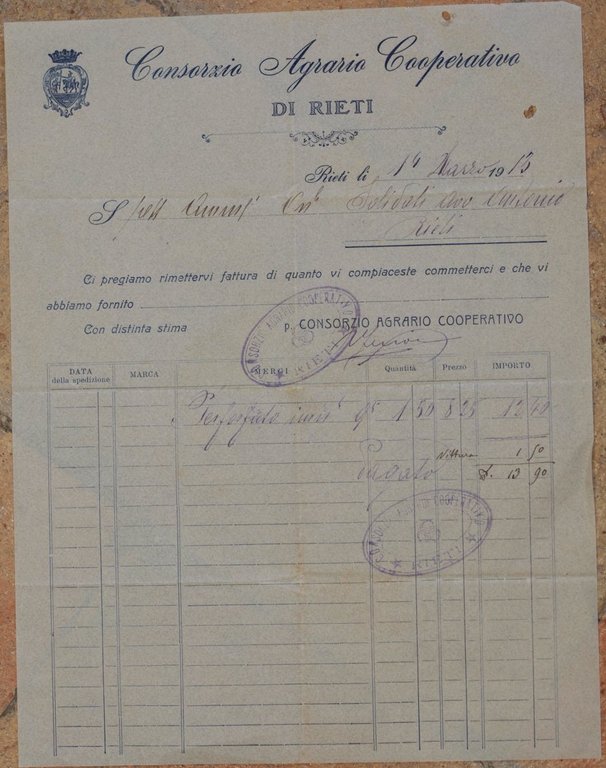 Consorzio Agrario Cooperativo
DI RIETI
Rieti li 14 Marzo 1913
Antonio
Rieti
Ci pregiamo rimettervi fattura di quanto vi compiaceste commetterci e che vi
abbiamo fornito
Con distinta stima p. CONSORZIO AGRARIO COOPERATIVO
CONSORZIO AGRARIO COOPERATIVO RIETI
DATA della spedizione MARCA MERCI Quantità Prezzo IMPORTO
Perfosfato 1 50 8 25 12 40
Vettura 1 50
Pagato 13 90
CONSORZIO AGRARIO COOPERATIVO RIETI